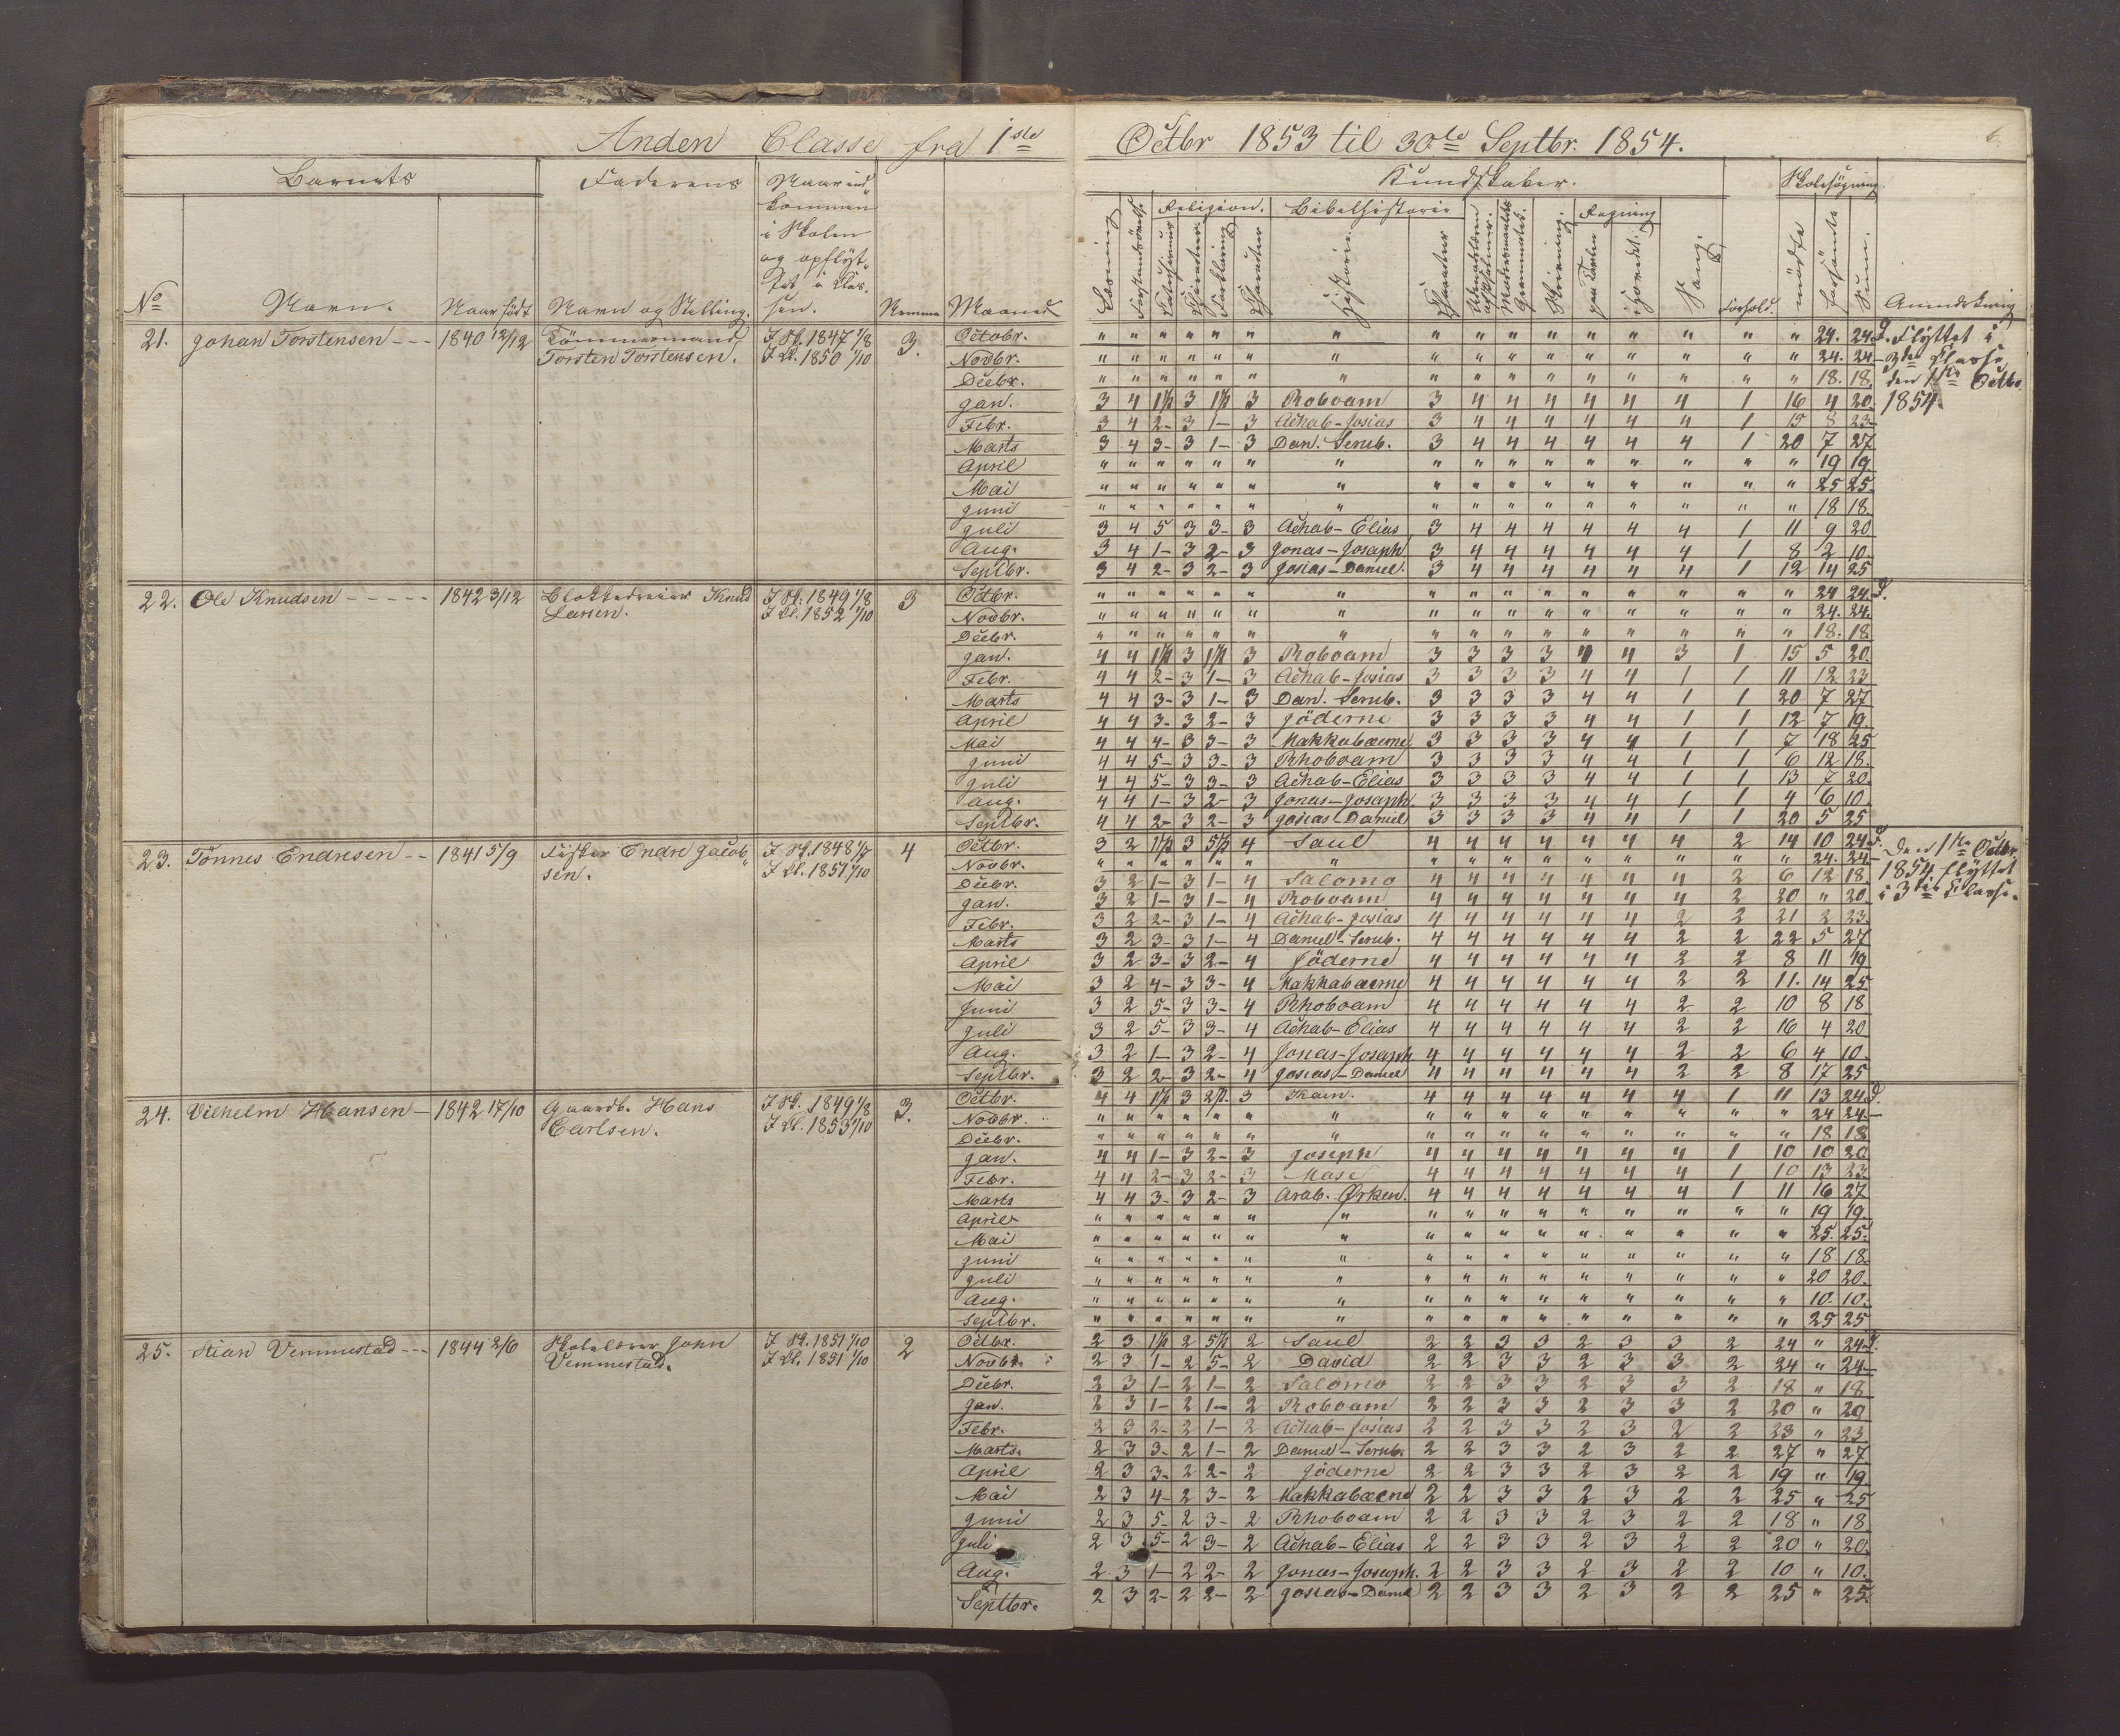 Anden Classe fra 1ste Octbr 1853 til 30te Septbr. 1854.
6.
Barnets Faderens Naar ind- Kundskaber. Skolesøgning
kommen
i Skolen
og opflyt-
tet i Clas-
sen.
Religion. Bibelhistorie Regning
No Navn. Naar født Navn og Stilling. Nemme Maaned
Læsning Forklaring Charakter Historie. Charakter Skrivning. paa Tavlen i Hovedet. Sang. Forhold. mødte forsømte Sum. Anmærkning
21. Johan Torstensen --- 1840 12/12 Tömmermand I Sk. 1847 1/8 3. Octobr. " " " " " " " " " " " " " " " " 24. 24. Flyttet i
Torsten Torstensen. I Cl. 1850 1/10 Novbr. " " " " " " " " " " " " " " " " 24. 24 3die Classe
Decbr. " " " " " " " " " " " " " " " " 18. 18. den 1ste Octbr.
Jan. 3 4 1½ 3 1½ 3 Roboam 3 4 4 4 4 4 4 1 16 4 20. 1854.
Febr. 3 4 2- 3 1- 3 Achab-Josias 3 4 4 4 4 4 4 1 15 8 23
Marts 3 4 3- 3 1- 3 Dan. Serub. 3 4 4 4 4 4 4 1 20 7 27
April " " " " " " " " " " " " " " " " 19 19.
Mai " " " " " " " " " " " " " " " " 25 25.
Juni " " " " " " " " " " " " " " " " 18 18.
Juli 3 4 5 3 3- 3 Achab-Elias 3 4 4 4 4 4 4 1 11 9 20
Aug. 3 4 1- 3 2- 3 Jonas-Josaph 3 4 4 4 4 4 4 1 8 2 10.
Septbr. 3 4 2- 3 2- 3 Josias-Daniel. 3 4 4 4 4 4 4 1 12 14 25
22. Ole Knudsen ----- 1842 3/12 Blokkedreier Knud I Sk. 1849 1/8 3 Octbr. " " " " " " " " " " " " " " " " 24 24.
Larsen. I Cl. 1852 1/10 Novbr. " " " " " " " " " " " " " " " " 24. 24.
Decbr. " " " " " " " " " " " " " " " " 18. 18
Jan. 4 4 1½ 3 1½ 3 Roboam 3 3 3 3 4 4 3 1 15 5 20.
Febr. 4 4 2- 3 1- 3 Achab-Josias 3 3 3 3 4 4 1 1 11 12 23
Marts 4 4 3- 3 1- 3 Dan. Serub. 3 3 3 3 4 4 1 1 20 7 27
April 4 4 3- 3 2- 3 Jöderne 3 3 3 3 4 4 1 1 12 7 19.
Mai 4 4 4- 3 3- 3 Makkabæerne 3 3 3 3 4 4 1 1 7 18 25
Juni 4 4 5- 3 3- 3 Rhoboam 3 3 3 3 4 4 1 1 6 12 18.
Juli 4 4 5- 3 3- 3 Achab-Elias 3 3 3 3 4 4 1 1 13 7 20.
Aug. 4 4 1- 3 2- 3 Jonas-Josaph. 3 3 3 3 4 4 1 1 4 6 10.
Septbr. 4 4 2- 3 2- 3 Josias-Daniel 3 3 3 3 4 4 1 1 20 5 25
23. Tönnes Endresen -- 1841 5/9 Fisker Endre Jacob- I Sk. 1848 1/7 4 Octbr. 3 2 1½ 3 5½ 4 Saul 4 4 4 4 4 4 4 2 14 10 24 Den 1ste Octbr.
sen. I Cl. 1851 1/10 Novbr. " " " " " " " " " " " " " " " " 24. 24. 1854 flyttet
Decbr. 3 2 1- 3 1- 4 Salomo 4 4 4 4 4 4 4 2 6 12 18. i 3die Classe.
Jan. 3 2 1- 3 1- 4 Roboam 4 4 4 4 4 4 4 2 20 " 20.
Febr. 3 2 2- 3 1- 4 Achab-Josias 4 4 4 4 4 4 2 2 21 2 23.
Marts 3 2 3- 3 1- 4 Daniel-Serub. 4 4 4 4 4 4 2 2 22 5 27
April 3 2 3- 3 2- 4 Jöderne 4 4 4 4 4 4 2 2 8 11 19
Mai 3 2 4- 3 3- 4 Makkabæerne 4 4 4 4 4 4 2 2 11. 14 25.
Juni 3 2 5- 3 3- 4 Rhoboam 4 4 4 4 4 4 2 2 10 8 18
Juli 3 2 5- 3 3- 4 Achab-Elias 4 4 4 4 4 4 2 2 16 4 20
Aug. 3 2 1- 3 2- 4 Jonas-Josaph 4 4 4 4 4 4 2 2 6 4 10.
Septbr. 3 2 2- 3 2- 4 Josias-Daniel 4 4 4 4 4 4 2 2 8 17 25
24. Vilhelm Hansen - 1842 17/10 Gaardb. Hans I Sk. 1849 1/8 3. Octbr. 4 4 1½ 3 2½. 3 Kain. 4 4 4 4 4 4 4 1 11 13 24
Carlsen. I Cl. 1853 1/10 Novbr. " " " " " " " " " " " " " " " " 24 24.-
Decbr. " " " " " " " " " " " " " " " " 18 18
Jan. 4 4 1- 3 2- 3 Joseph 4 4 4 4 4 4 4 1 10 10 20
Febr. 4 4 2- 3 2- 3 Mose 4 4 4 4 4 4 4 1 10 13 23.
Marts 4 4 3- 3 2- 3 Arab. Ørken. 4 4 4 4 4 4 4 1 11 16 27
April " " " " " " " " " " " " " " " " 19 19.
Mai " " " " " " " " " " " " " " " " 25. 25.
Juni " " " " " " " " " " " " " " " " 18 18.
Juli " " " " " " " " " " " " " " " " 20 20.
Aug. " " " " " " " " " " " " " " " " 10. 10.
Septbr. " " " " " " " " " " " " " " " " 25 25
25. Stian Vemmestad --- 1844 2/6 Skolelærer John I Sk. 1851 1/10 2 Octbr. 2 3 1½ 2 5½ 2 Saul 2 2 3 3 2 3 3 2 24 " 24
Vemmestad. I Cl. 1851 1/10 Novbr. 2 3 1- 2 5- 2 David 2 2 3 3 2 3 3 2 24 " 24-
Decbr. 2 3 1- 2 1- 2 Salomo 2 2 3 3 2 3 3 2 18 " 18
Jan. 2 3 1- 2 1- 2 Roboam 2 2 3 3 2 3 3 2 20 " 20
Febr. 2 3 2- 2 1- 2 Achab-Josias 2 2 3 3 2 3 2 2 23 " 23.
Marts. 2 3 3- 2 1- 2 Daniel-Serub. 2 2 3 3 2 3 2 2 27 " 27
April 2 3 3- 2 2- 2 Jöderne 2 2 3 3 2 3 2 2 19 " 19.
Mai 2 3 4- 2 3- 2 Makkabæerne 2 2 3 3 2 3 2 2 25 " 25
Juni 2 3 5- 2 3- 2 Rhoboam 2 2 3 3 2 3 2 2 18 " 18.
Juli 2 3 5- 2 3- 2 Achab-Elias 2 2 3 3 2 3 2 2 20 " 20.
Aug. 2 3 1- 2 2- 2 Jonas-Josaph. 2 2 3 3 2 3 2 2 10 " 10.
Septbr. 2 3 2- 2 2- 2 Josias-Daniel 2 2 3 3 2 3 2 2 25 " 25.